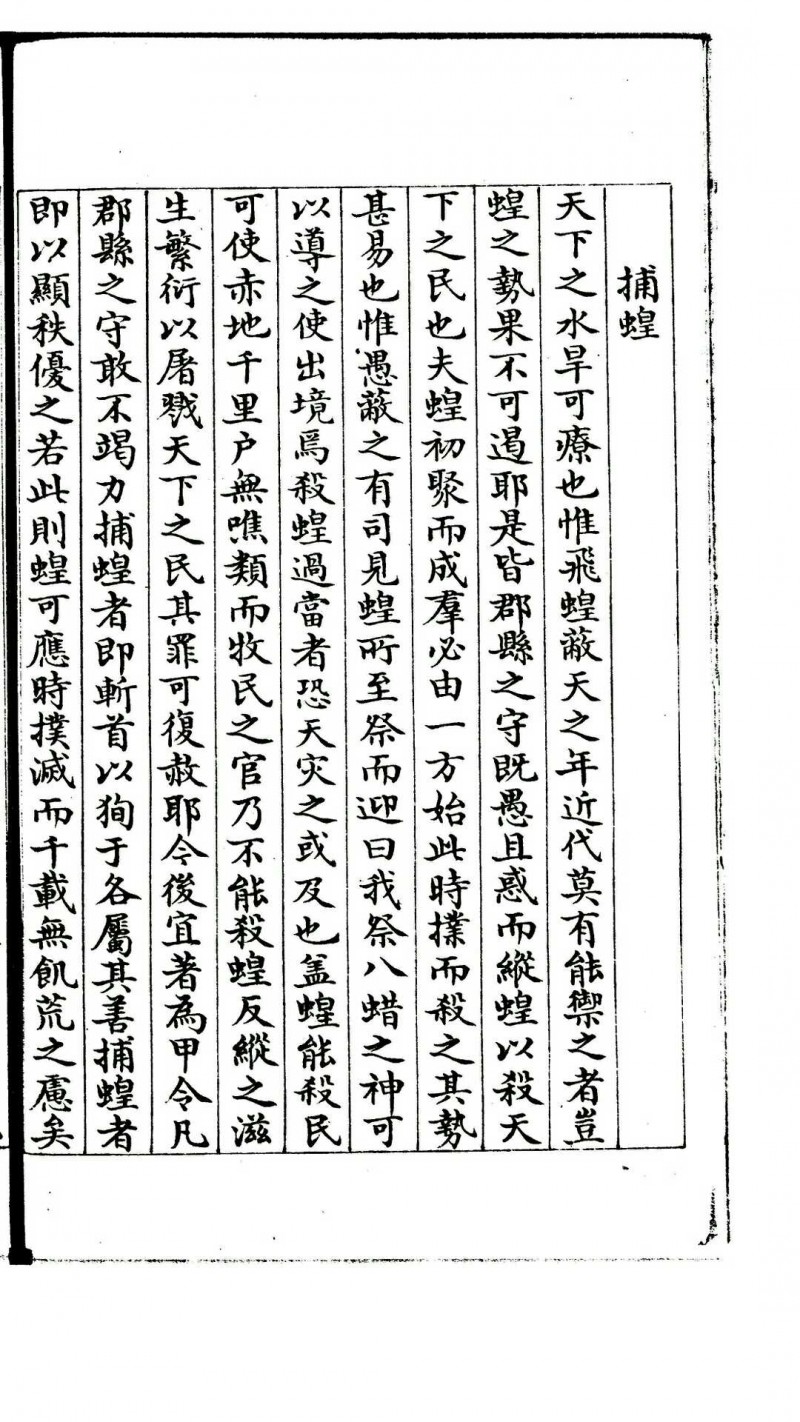 捕蝗
天下之水旱可療也惟飛蝗蔽天之年近代莫有能禦之者豈
蝗之勢果不可遏耶是皆郡縣之守既愚且惑而縱蝗以殺天
下之民也夫蝗初聚而成羣必由一方始此時撲而殺之其勢
甚易也惟愚蔽之有司見蝗所至祭而迎曰我祭八蜡之神可
以導之使出境焉殺蝗過當者恐天灾之或及也盖蝗能殺民
可使赤地千里户無噍類而牧民之官乃不能殺蝗反縱之滋
生繁衍以屠戮天下之民其罪可復赦耶令後宜著為甲令凡
郡縣之守敢不竭力捕蝗者即斬首以狥于各屬其善捕蝗者
即以顯秩優之若此則蝗可應時撲滅而千載無飢荒之慮矣